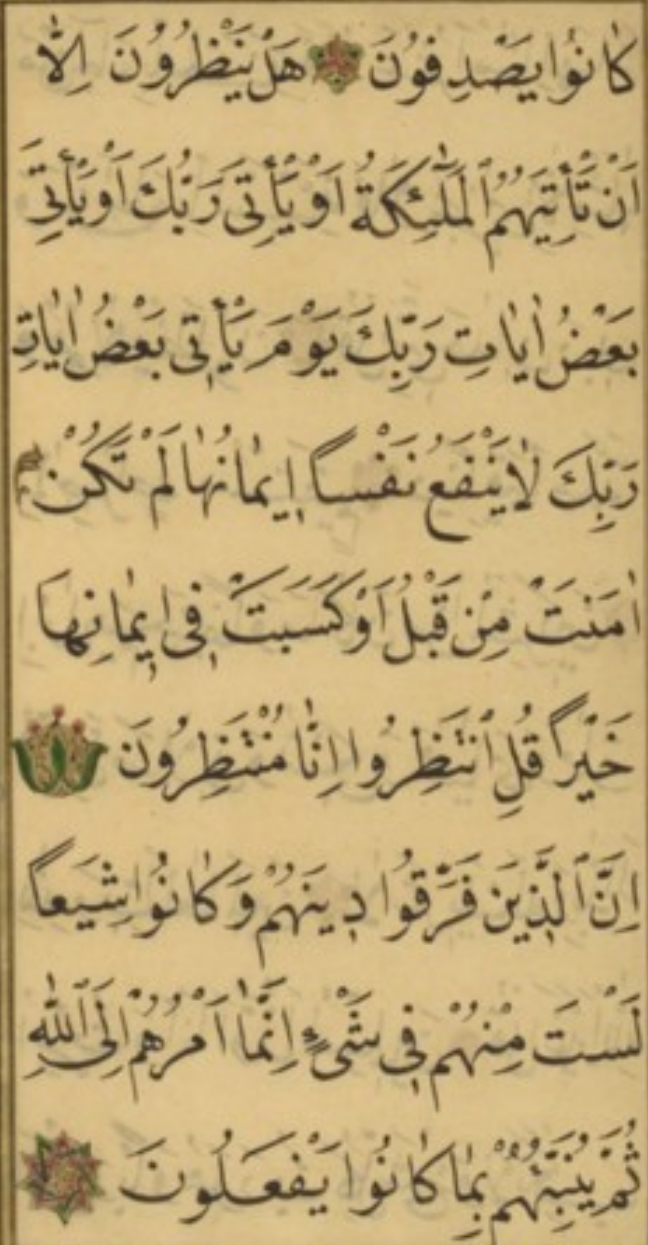 كَانُوا يَصْدِفُونَ هَلْ يَنْظُرُونَ اِلَّا
اَنْ تَأْتِيَهُمُ الْمَلٰٓئِكَةُ اَوْ يَأْتِىَ رَبُّكَ اَوْ يَأْتِىَ
بَعْضُ اٰيَاتِ رَبِّكَ يَوْمَ يَأْتِى بَعْضُ اٰيَاتِ
رَبِّكَ لَا يَنْفَعُ نَفْساً اِيمَانُهَا لَمْ تَكُنْ
اٰمَنَتْ مِنْ قَبْلُ اَوْ كَسَبَتْ فِى اِيمَانِهَا
خَيْراً قُلِ انْتَظِرُوا اِنَّا مُنْتَظِرُونَ
اِنَّ الَّذِينَ فَرَّقُوا دِينَهُمْ وَكَانُوا شِيَعاً
لَسْتَ مِنْهُمْ فِى شَىْءٍ اِنَّمَا اَمْرُهُمْ اِلَى اللّٰهِ
ثُمَّ يُنَبِّئُهُمْ بِمَا كَانُوا يَفْعَلُونَ